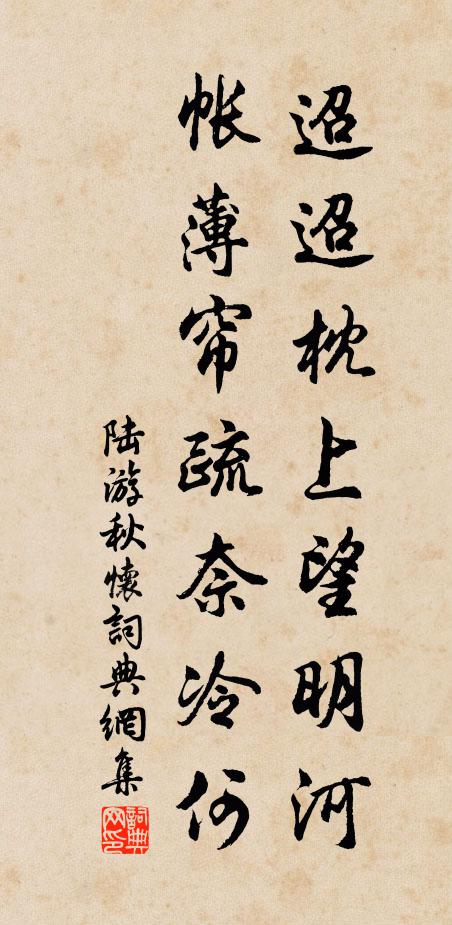 迢迢枕上望明河
帐薄帘疏奈冷何
陆游秋怀詞典網集
詞典网印